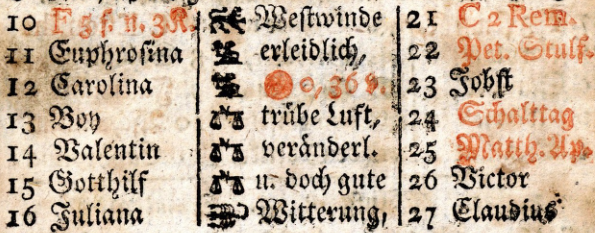 10 F 3 f. n. 3K. Westwinde 21 C 2 Rem.
11 Euphrosina erleidlich, 22 Pet. Stulf.
12 Carolina 0, 36 v. 23 Jobst
13 Boy trübe Luft, 24 Schalttag
14 Valentin veränderl. 25 Matth. Ap.
15 Gotthilf u. doch gute 26 Victor
16 Juliana Witterung, 27 Claudius